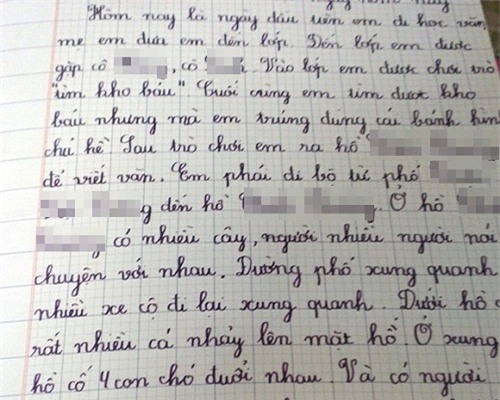 ngày hôm nay
Hôm nay là ngày đầu tiên em đi học văn
mẹ em đưa em đến lớp. Đến lớp em được
gặp cô , cô . Vào lớp em được chơi trò
"tìm kho báu" Cuối cùng em tìm được kho
báu nhưng mà em trúng đúng cái bánh hình
chú hề. Sau trò chơi em ra hồ
để viết văn. Em phải đi bộ từ phố
g đến hồ . Ở hồ
có nhiều cây, người nhiều người nói
chuyện với nhau. Đường phố xung quanh
nhiều xe cộ đi lại xung quanh. Dưới hồ c
rất nhiều cá nhảy lên mặt hồ. Ở xung
hồ cố 4 con chó đuổi nhau. Và có người